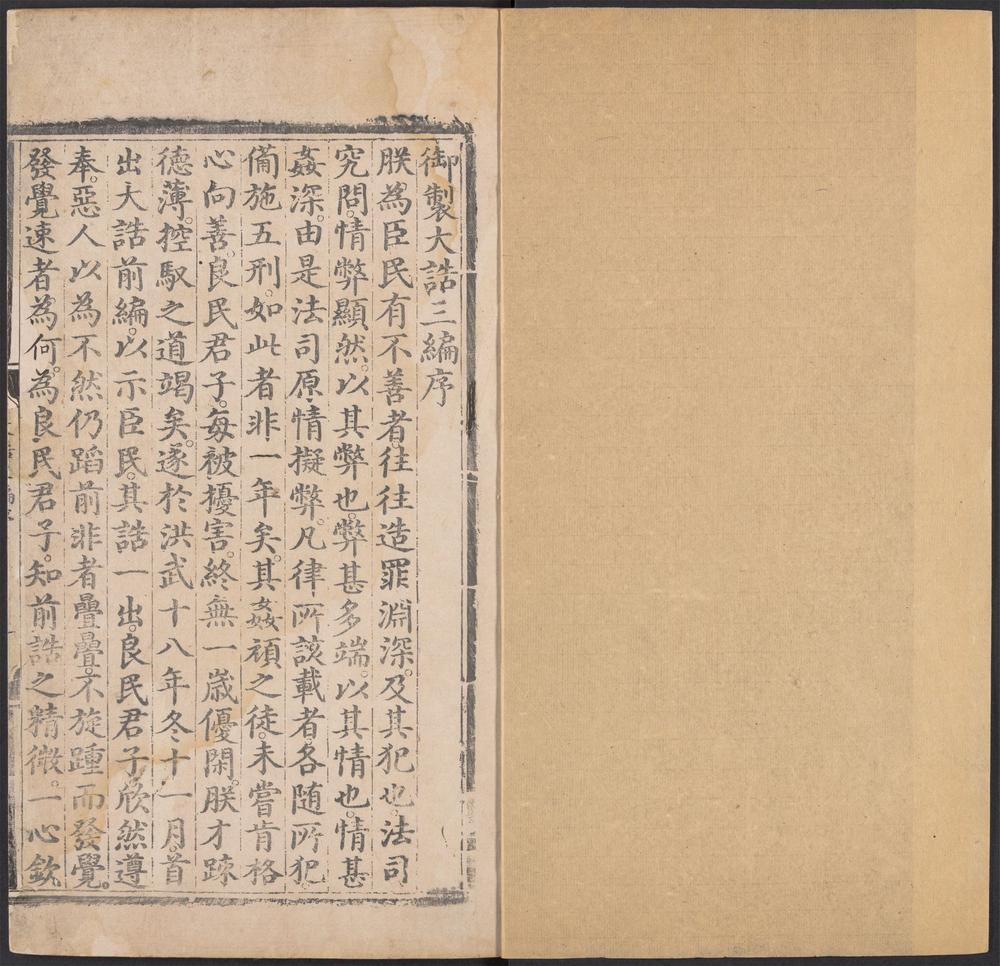 御製大誥三編序
朕為臣民有不善者。往往造罪淵深。及其犯也。法司
究問。情弊顯然。以其弊也。弊甚多端。以其情也。情甚
姦深。由是法司原情擬弊。凡律所該載者。各随所犯
備施五刑。如此者非一年矣。其姦頑之徒。未嘗肯格
心向善。良民君子。每被擾害。終無一歲優閑。朕才踈
德薄。控馭之道竭矣。遂於洪武十八年冬十一月。首
出大誥前編。以示臣民。其誥一出。良民君子。欣然遵
奉。惡人以為不然。仍蹈前非者疊疊。不旋踵而發覺。
發覺速者為何。為良民君子。知前誥之精微。一心欽